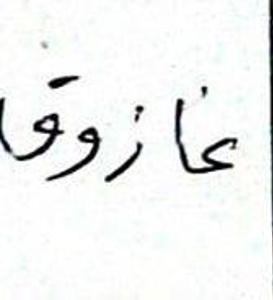 غازوقا